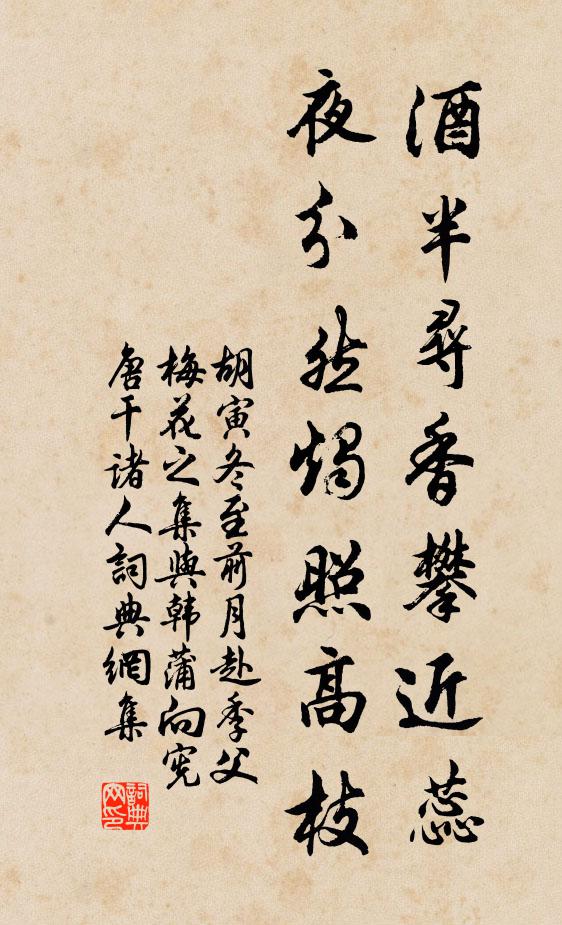 酒半尋香攀近蕊
夜分然燭照高枝
胡寅冬至前月赴季父
梅花之集與韩蒲向宪
唐干诸人詞典網集
詞典網印